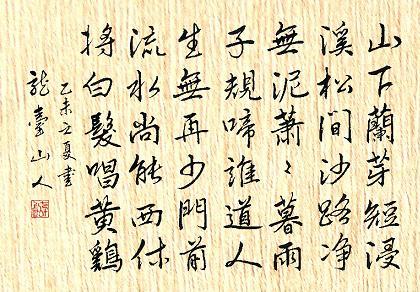 山下蘭芽短浸
溪松間沙路净
無泥蕭〻暮雨
子規啼誰道人
生無再少門前
流水尚能西休
将白髮唱黃鷄
乙未之夏書
龍臺山人